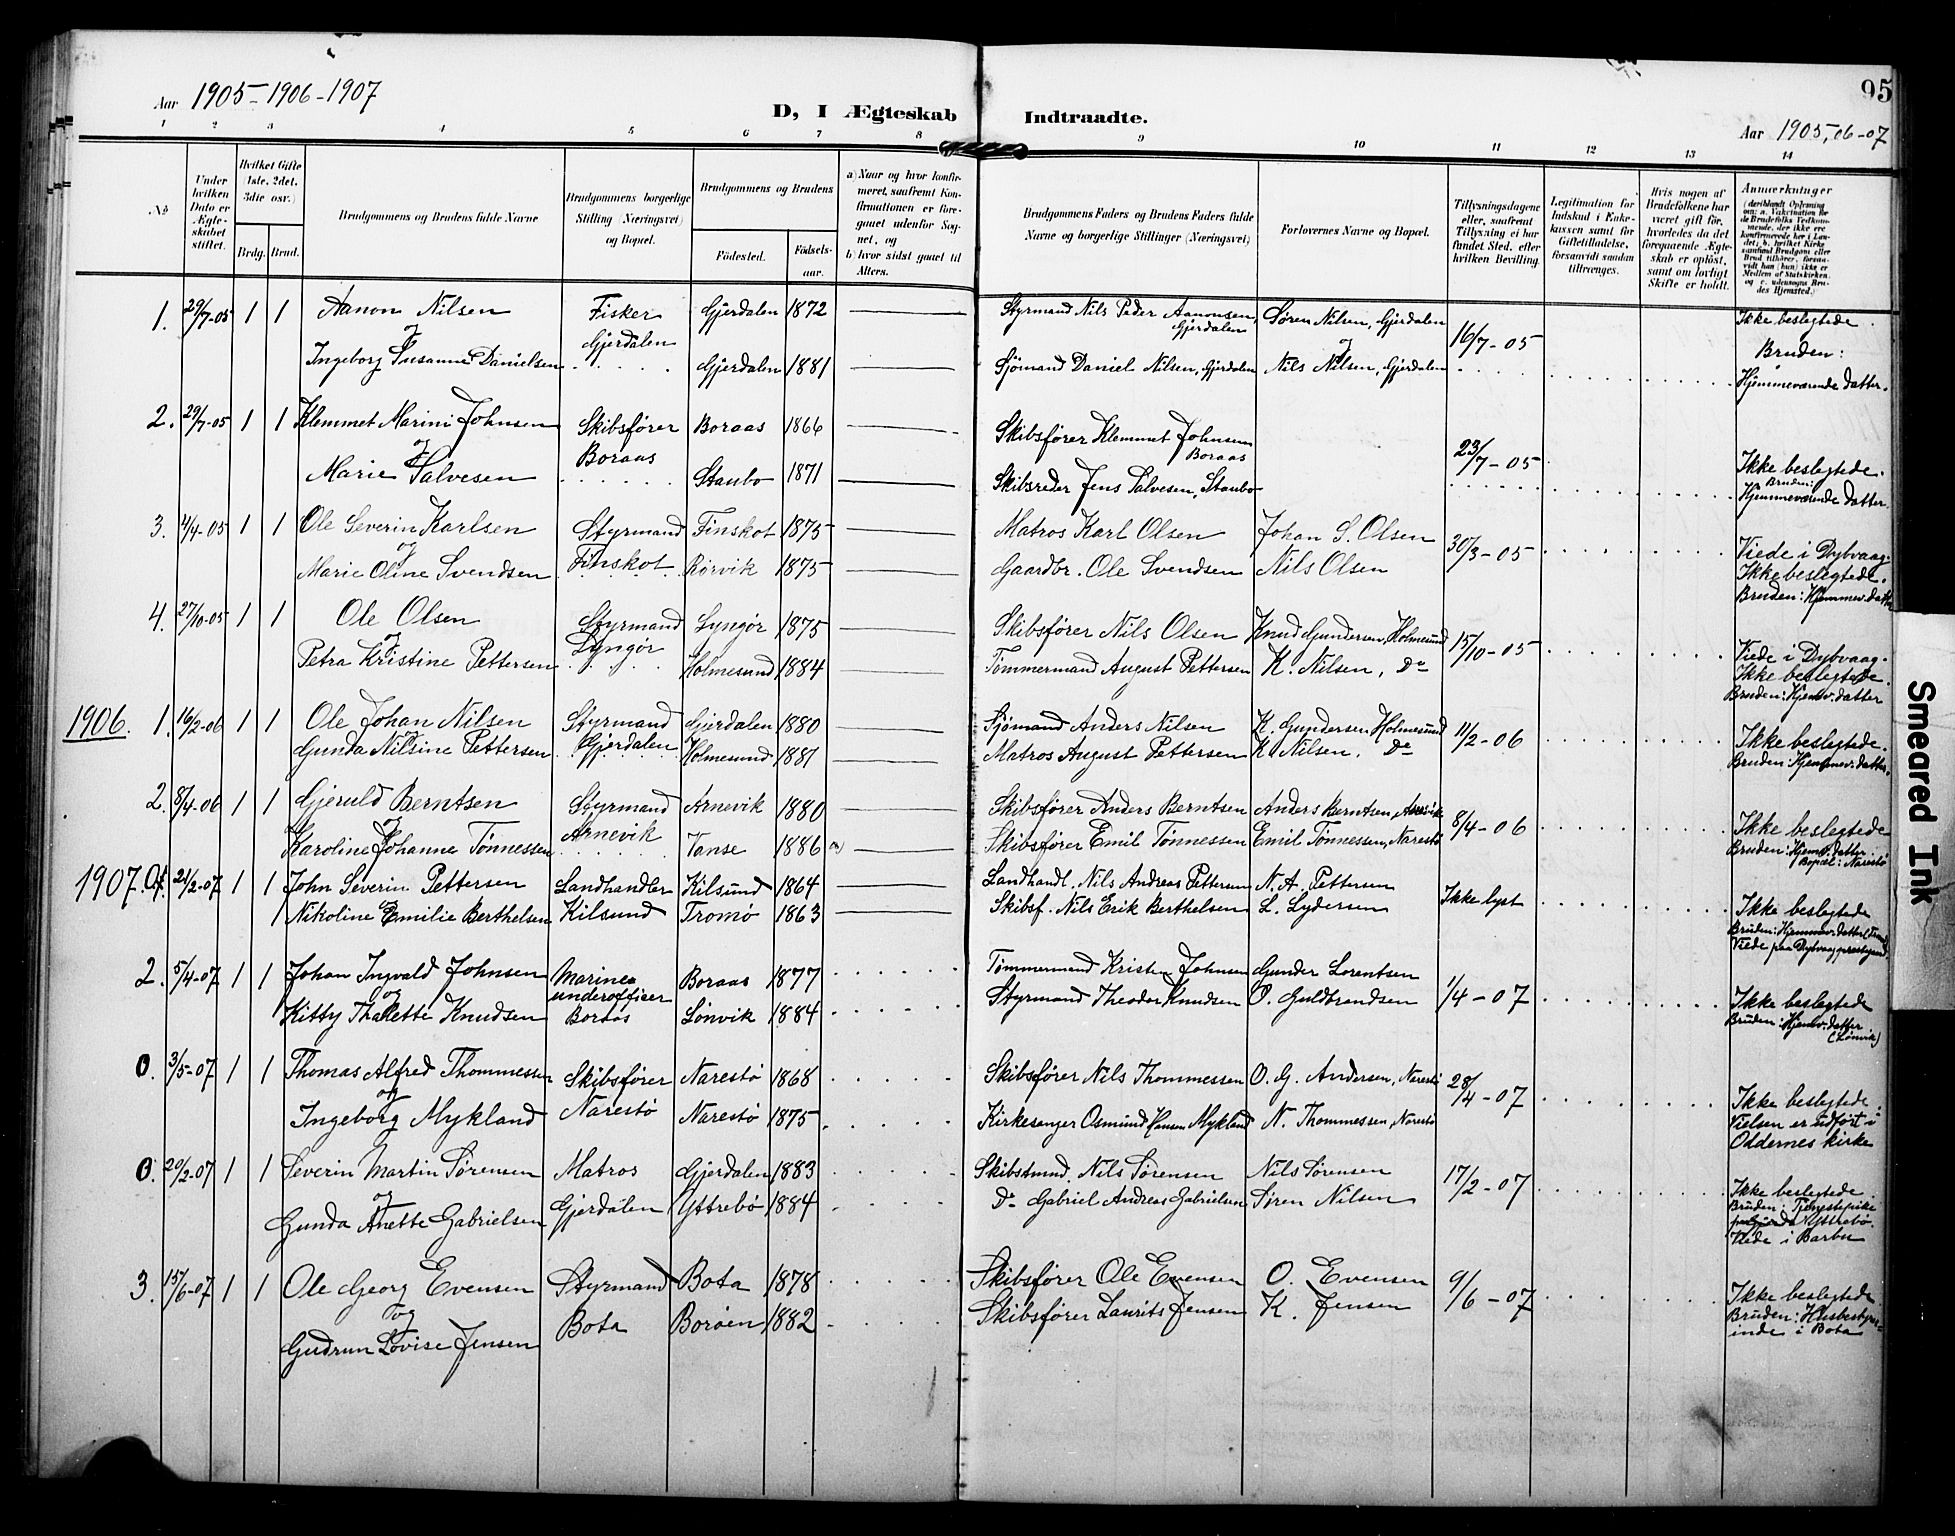 Aar 1905-1906-1907
D, I Ægteskab Indtraadte.
95
Aar 1905,06-07
1 2 3 4 5 6 7 8 9 10 11 12 13 14
No
Under hvilken Dato er Ægteskabet stiftet.
Hvilket Gifte (1ste, 2det, 3die osv.)
Brdg. Brud.
Brudgommens og Brudens fulde Navne
Brudgommens borgerlige Stilling (Næringsvei) og Bopæl.
Brudgommens og Brudens
Födested.
Födsels-aar.
a) Naar og hvor konfirmeret, saafremt Konfirmationen er foregaaet udenfor Sognet, og
b) hvor sidst gaaet til Alters.
Brudgommens Faders og Brudens Faders fulde Navne og borgerlige Stillinger (Næringsvei)
Forlovernes Navne og Bopæl.
Tillysningsdagene eller, saafremt Tillysning ei har fundet Sted, efter hvilken Bevilling.
Legitimation for Indskud i Enkekassen samt for Giftetilladelse, forsaavidt saadan tiltrænges.
Hvis nogen af Brudefolkene har været gift før, hvorledes da det foregaaende Ægteskab er oplöst, samt om lovligt Skifte er holdt.
Anmærkninger
1. 29/7-05 1 1 Aanon Nilsen Fisker Gjerdalen 1872 Styrmand Nils Peder Aanonsen, Gjerdalen Søren Nilsen, Gjerdalen 16/7-05 Ikke beslegtede.
og Gjerdalen
Ingeborg Susanne Danielsen Gjerdalen 1881 Sjömand Daniel Nilsen, Gjerdalen og Nils Nilsen, Gjerdalen Bruden: Hjemmeværende datter.
2. 29/7-05 1 1 Klemmet Marini Johnsen Skibsfører Boraas 1866 Skibsfører Klemmet Johnsen Boraas 23/7-05
og Boraas
Marie Salvesen Staubo 1871 Skibsreder Jens Salvesen, Staubo Ikke beslegtede. Bruden: Hjemmeværende datter.
3. 4/4-05 1 1 Ole Severin Karlsen Styrmand Finskot 1875 Matros Karl Olsen Johan S. Olsen 30/3-05 Viede i Dybvaag.
og Finskot
Marie Oline Svendsen Rörvik 1875 Gaardbr. Ole Svendsen Nils Olsen Ikke beslegtede. Bruden: Hjemmev. datter
4. 27/10-05 1 1 Ole Olsen Styrmand Lyngør 1875 Skibsfører Nils Olsen Knud Gundersen, Holmesund 15/10-05 Viede i Dybvaag.
og Lyngør
Petra Kristine Pettersen Holmesund 1884 Tömmermand August Pettersen K. Nilsen, Do Ikke beslegtede. Bruden: Hjemv. datter
1906. 1. 16/2-06 1 1 Ole Johan Nilsen Styrmand Gjerdalen 1880 Sjömand Anders Nilsen K. Gundersen Holmesund 11/2-06 Ikke beslegtede.
og Gjerdalen
Gunda Nilsine Pettersen Holmesund 1881 Matros August Pettersen K. Nilsen, Do Bruden: Hjemmev. datter.
2. 8/4-06 1 1 Gjeruld Berntsen Styrmand Arnevik 1880 Skibsfører Anders Berntsen Anders Berntsen, Arnevik 8/4-06 Ikke beslegtede
og Arnevik
Karoline Johanne Tønnessen Vanse 1886 a) Skibsfører Emil Tønnessen Emil Tønnessen, Narestö Bruden: Hjemv. datter. Bopæl: Narestö
1907. 21/2-07 1 1 John Severin Pettersen Landhandler Kilsund 1864 Landhandl. Nils Andreas Pettersen N. A. Pettersen Ikke lyst Ikke beslegtede
1 Nikoline Emilie Berthelsen Kilsund Tromö 1863 Skibsf. Nils Erik Berthelsen L. Lydersen Bruden: Hjemmev. datter Viede paa Dybvaag prestegaard
2. 5/4-07 1 1 Johan Ingvald Johnsen Marineunderofficer Boraas 1877 Tömmermand Kristen Johnsen Gunder Lorentsen 1/4-07 Ikke beslegtede
og Boraas
Kitty Thalette Knudsen Lönvik 1884 Styrmand Theodor Knudsen O. Guldbrandsen Bruden: Hjemv. datter (Lönvik)
0. 3/5-07 1 1 Thomas Alfred Thommessen Skibsfører Narestö 1868 Skibsfører Nils Thommessen O. G. Andersen, Narestö 28/4-07 Ikke beslegtede.
og Narestö
Ingeborg Mykland Narestö 1875 Kirkesanger Osmund Hansen Mykland N. Thommessen, Narestö Vielsen er udfört i Oddernes kirke
0. 20/2-07 1 1 Severin Martin Sørensen Matros Gjerdalen 1883 Skibstmd. Nils Sørensen Nils Sørensen 17/2-07 Ikke beslegtede.
og Gjerdalen
Gunda Anette Gabrielsen Yttrebö 1884 Do Gabriel Andreas Gabrielsen Søren Nilsen Bruden: Tjenestepike Yttrebö. Viede i Barbu
3. 15/6-07 1 1 Ole Georg Evensen Styrmand Bota 1878 Skibsfører Ole Evensen O. Evensen 9/6-07 Ikke beslegtede
og Bota
Gudrun Lovise Jensen Boröen 1882 Skibsfører Laurits Jensen K. Jensen Bruden: Husbestyrerinde i Bota
Smeared Ink